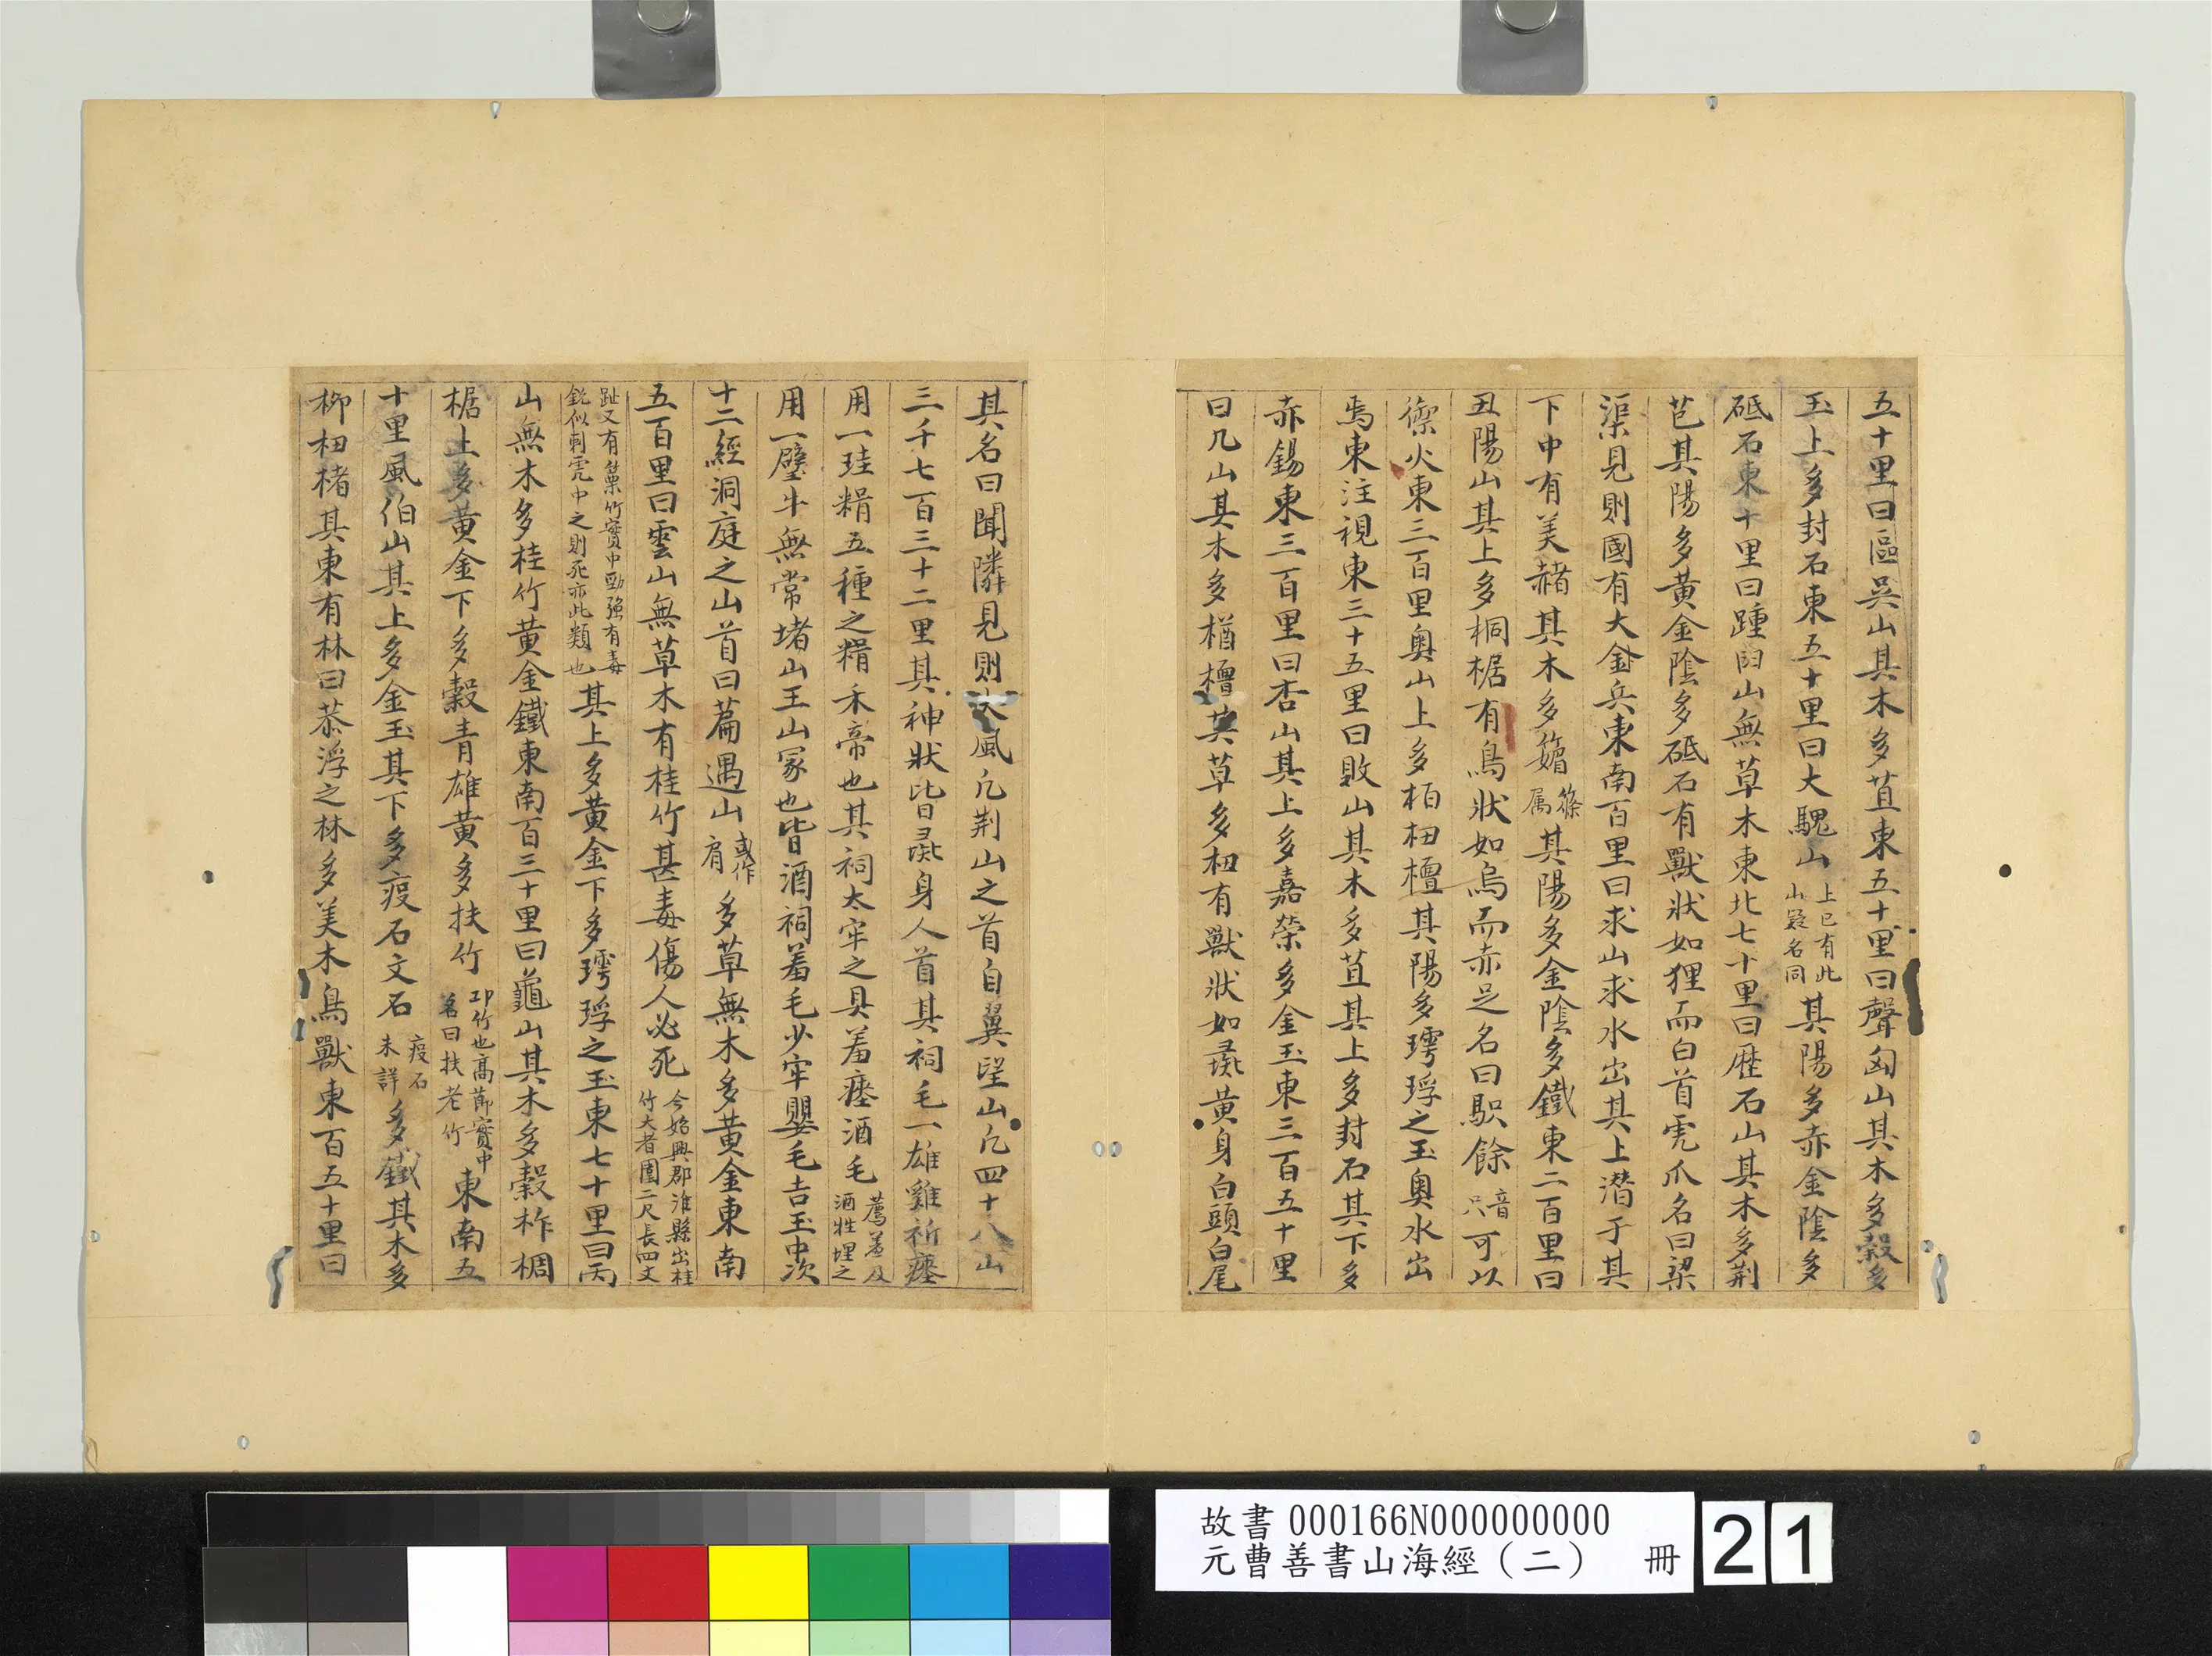 五十里曰區吳山其木多苴東五十里曰聲匈山其木多穀多
玉上多封石東五十里曰大騩山上已有此山疑名同其陽多赤金陰多
砥石東十里曰踵臼山無草木東北七十里曰歷石山其木多荆
芑其陽多黃金陰多砥石有獸狀如狸而白首虎爪名曰梁
渠見則國有大兵東南百里曰求山求水出其上潛于其
下中有美赭其木多䉋篠属其陽多金陰多鐵東二百里曰
丑陽山其上多桐椐有鳥狀如烏而赤足名曰䳅餘音只可以
禦火東三百里奥山上多栢杻橿其陽多㻬琈之玉奥水出
焉東注視東三十五里曰敗山其木多苴其上多封石其下多
赤錫東三百里曰杏山其上多嘉榮多金玉東三百五十里
曰几山其木多楢檀其草多杻有獸狀如彘黃身白頭白尾
其名曰聞獜見則大風凡荆山之首自翼望山凡四十八山
三千七百三十二里其神狀皆彘身人首其祠毛一雄雞祈瘗
用一珪糈五種之糈禾帝也其祠太牢之具羞瘗酒毛薦羞及酒牲埋之
用一璧牛無常堵山王山冢也皆酒祠羞毛少牢嬰毛吉玉中次
十二經洞庭之山首曰篇遇山或作肩多草無木多黃金東南
五百里曰雲山無草木有桂竹甚毒傷人必死今始興郡淮縣出桂竹大者圍二尺長四丈
趾又有菒竹實中勁強有毒銳似刺虎中之則死亦此類也其上多黃金下多㻬琈之玉東七十里曰丙
山無木多桂竹黃金鐵東南百三十里曰龜山其木多穀柞椆
椐上多黃金下多穀青雄黃多扶竹邛竹也高莭實中名曰扶老竹東南五
十里風伯山其上多金玉其下多痠石文石痠石未詳多鐵其木多
栁杻楮其東有林曰莽浮之林多美木鳥獸東百五十里曰
故書 000166N000000000
元曹善書山海經（二） 冊 21